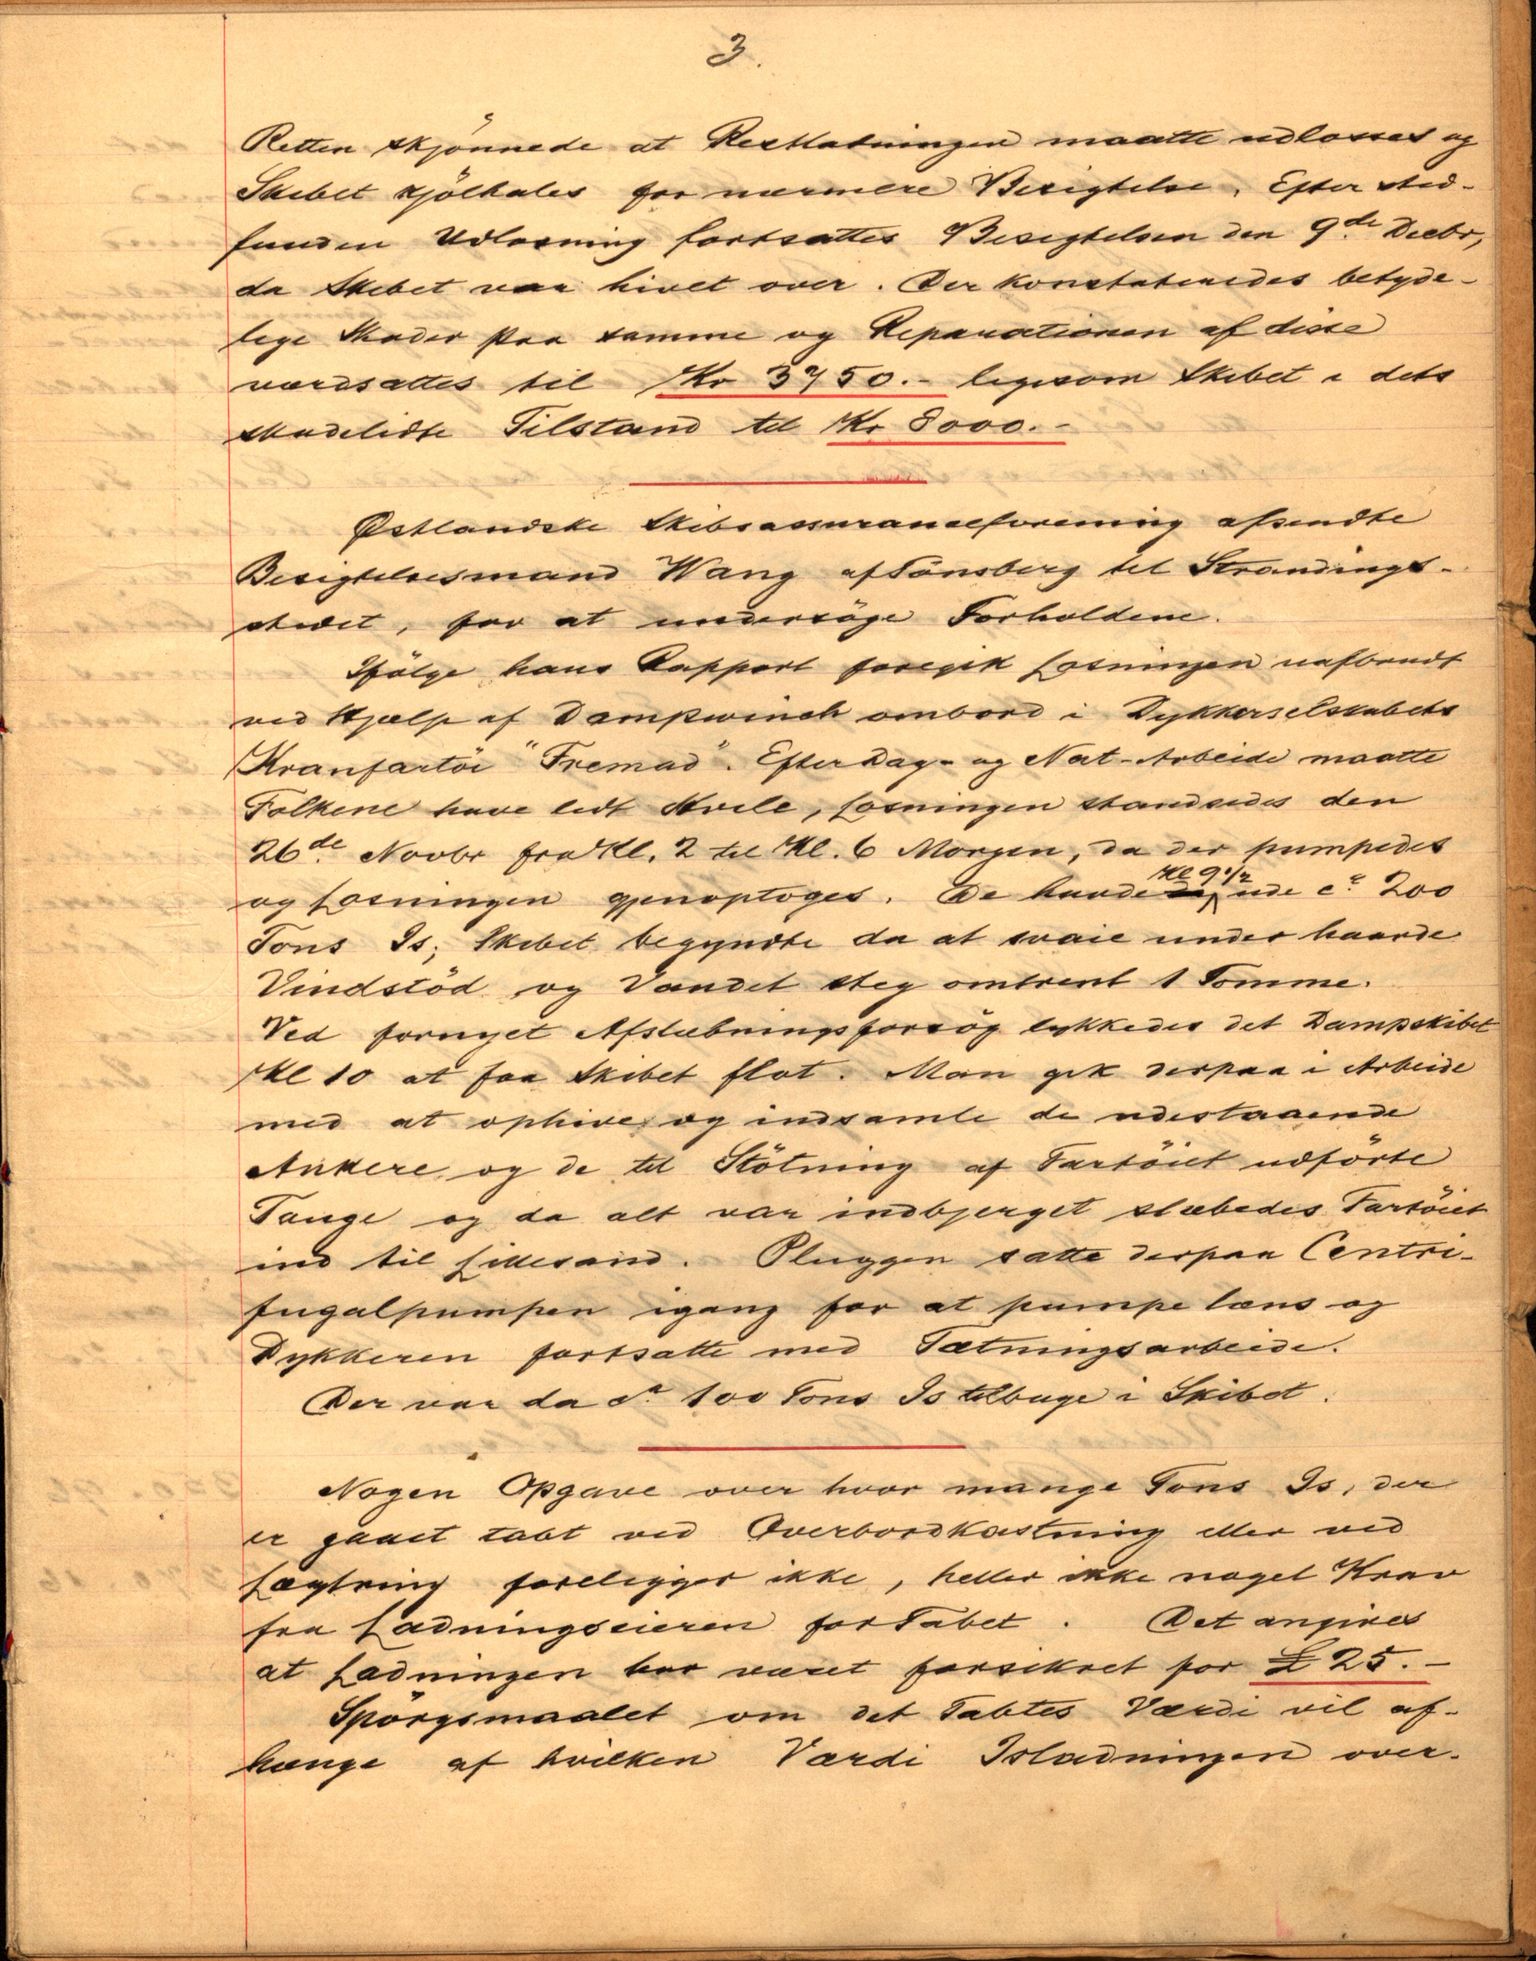 3.
Retten skjönnede at Restladningen maatte udlosses og
Skibet kjölhales for nærmere Besigtelse. Efter sted-
funden Udlosning fortsattes Besigtelsen den 9de Decbr,
da Skibet var hivet over. Der konstateredes betyde-
lige Skader paa samme og Reparationen af disse
værdsattes til Kr 3750.- ligesom Skibet i dets
skadelidte Tilstand til Kr 8000.-
Østlandske Skibsassuranceforening afsendte
Besigtelsesmand Wang af Tönsberg til Strandings-
stedet, for at undersöge Forholdene.
Ifölge hans Rapport foregik Losningen uafbrudt
ved Hjælp af Dampwinch ombord i Dykkerselskabets
Kranfartöi "Fremad". Efter Dag- og Nat-Arbeide maatte
Folkene have lidt Hvile, Losningen standsedes den
26de Novbr fra Kl. 2 til Kl. 6 Morgen, da der pumpedes
og Losningen gjenoptoges. De havde Kl 9 1/2 ude ca 200
Tons Is; Skibet begyndte da at svaie under haarde
Vindstöd og Vandet steg omtrent 1 Tomme.
Ved fornyet Afslæbningsforsög lykkedes det Dampskibet
Kl 10 at faa Skibet flot. Man gik derpaa i Arbeide
med at ophive og indsamle de udestaaende
Ankere og de til Stötning af Fartöiet udförte
Tauge og da alt var indbjerget slæbedes Fartöiet
ind til Lillesand. Pluggen satte derpaa Centri-
fugalpumpen igang for at pumpe læns og
Dykkeren fortsatte med Tætningsarbeide.
Der var da ca 100 Tons Is tilbage i Skibet.
Nogen Opgave over hvor mange Tons Is, der
er gaaet tabt ved Overbordkastning eller ved
Lægtring foreligger ikke, heller ikke noget Krav
fra Ladningseieren for Tabet. Det angives
at Ladningen har været forsikret for £ 25.-
Spörgsmaalet om det Tabtes Værdi vil af-
hænge af hvilken Værdi Isladningen over-